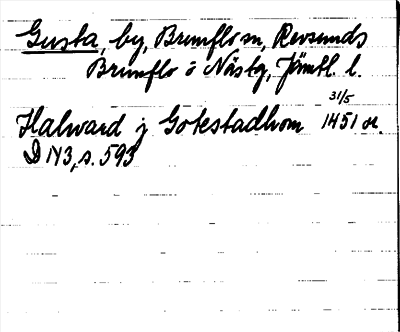 Gusta, by, Brunflo sn, Revsunds
Brunflo o Näsk tg, Jämtl. l.
31/5
Halward j Gotestadhom 1451 or.
D N3, s. 593